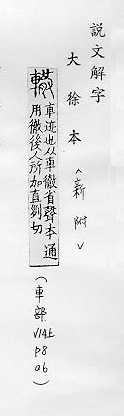 說文解字
大徐本
<新附>
轍
車迹也从車徹省聲本通
用徹後人所加直列切
(車部
V14上
P8
06)